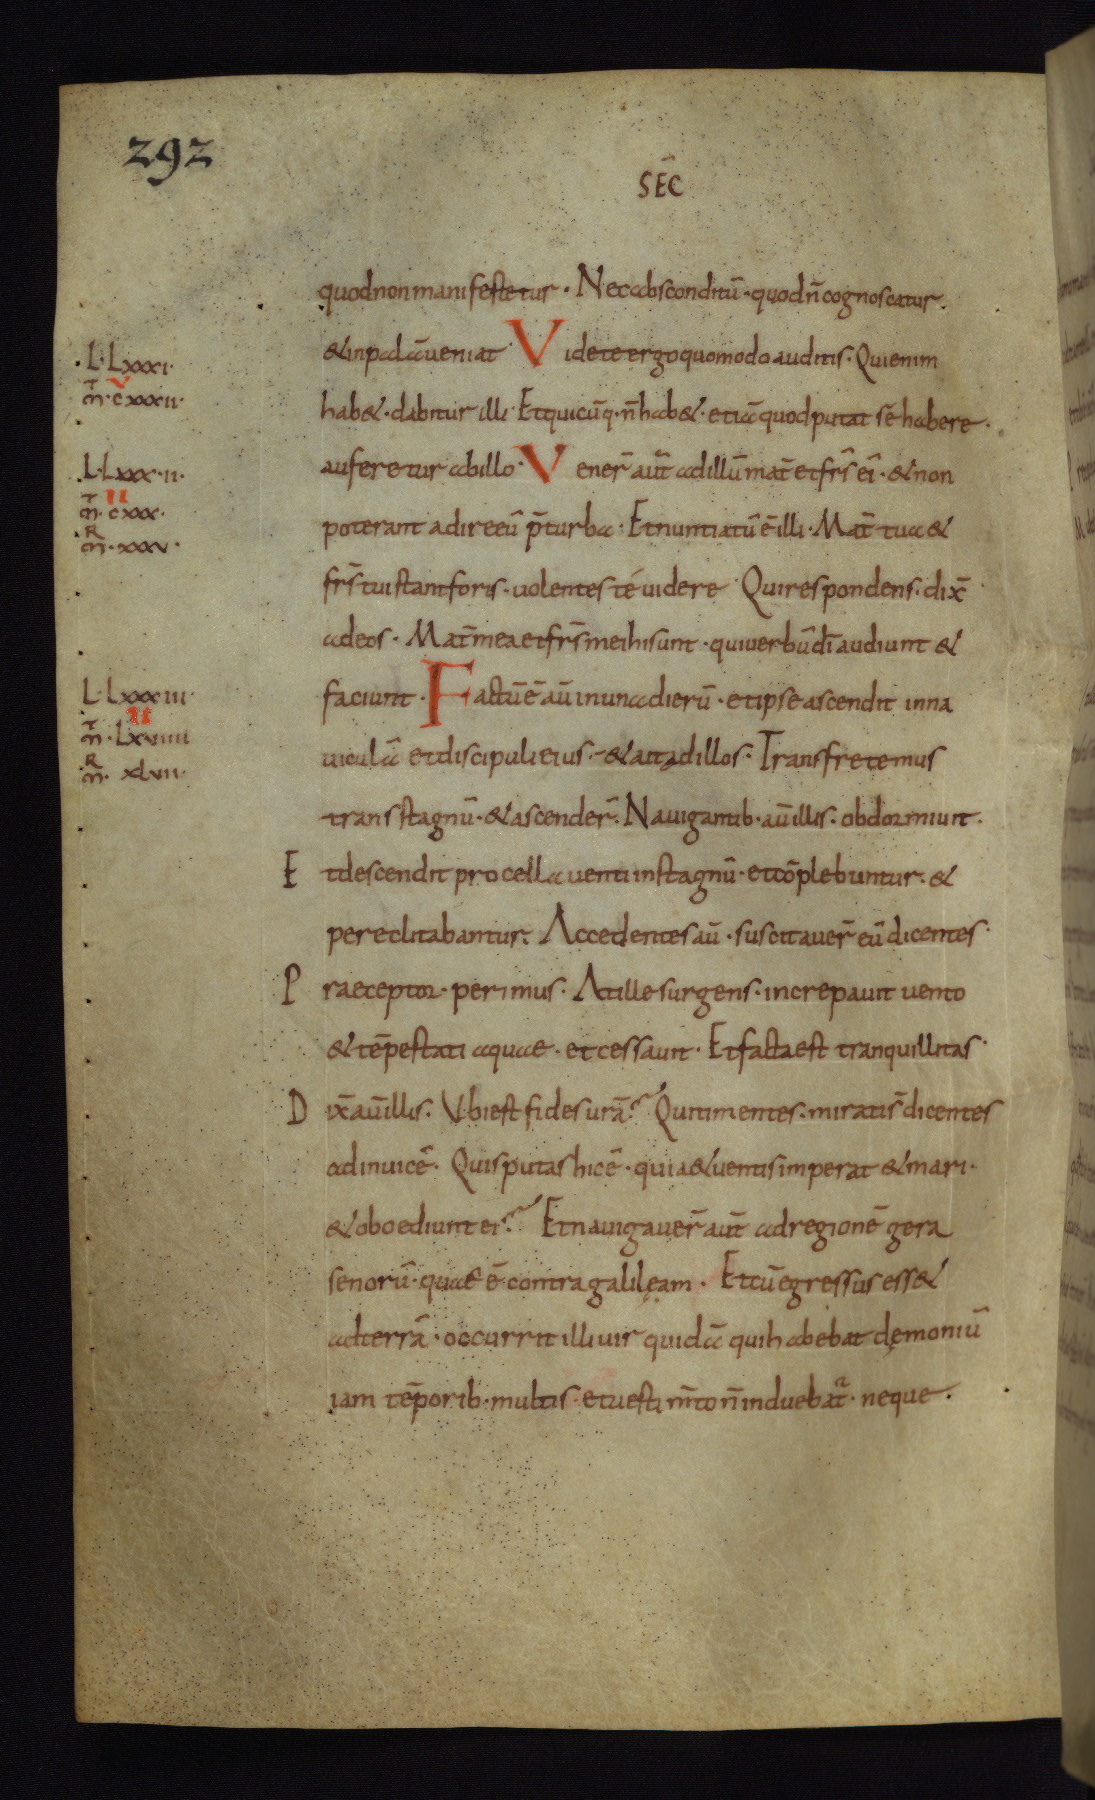 292
SEĈ
quod non manifestetur. Nec absconditū. quod n̄ cognoscatur.
& in palā ueniat. Videte ergo quomodo auditis. Qui enim
hab&. dabitur illi. Et quicūq. n̄ hab&. etiā quod putat sē habere.
auferetur ab illo. Vener̄ aut̄ ad illū mat̄ et fr̄s ei. & non
poterant adire eū p̄ turba. Et nuntiatū ē illi. Mat̄ tua &
fr̄s tui stant foris. uolentes té uidere. Qui respondens. dix̄
ad eos. Mat̄ mea et fr̄s mei hi sunt. qui uerbū dī audiunt &
faciunt. Factū ē aū in una dierū. et ipse ascendit in na
uiculā et discipuli eius. & ait ad illos. Transfretemus
trans stagnū. & ascender̄. Nauigantib. aū illis. obdormiuit.
Et descendit procella uenti in stagnū. et cōplebuntur. &
pereclitabantur. Accedentes aū. suscitauer̄ eū dicentes.
Praeceptor. perimus. At ille surgens. increpauit uento
& tēpestati aquae. et cessauit. Et facta est tranquillitas.
Dix̄ aū illis. Vbi est fides urā. Qui timentes. mirati s̄ dicentes
ad inuicē. Quis putas hic ē. quia & uentis imperat & mari.
& oboediunt ei. Et nauigauer̄ aut̄ ad regionē gera
senorū. quae ē contra galilęam. Et cū egressus ess&
ad terrā. occurrit illi uir quidā qui habebat dęmoniū
iam tēporib. multis. et uestim̄to n̄ induebat̄. neque.
L. Lxxxi.
m̄. cxxxii.
v
L. Lxxx.ii.
m̄. cxxx.
ii
m̄. xxxv.
L. Lxxxiii.
m̄. Lxviiii
ii
m̄. xlvii.